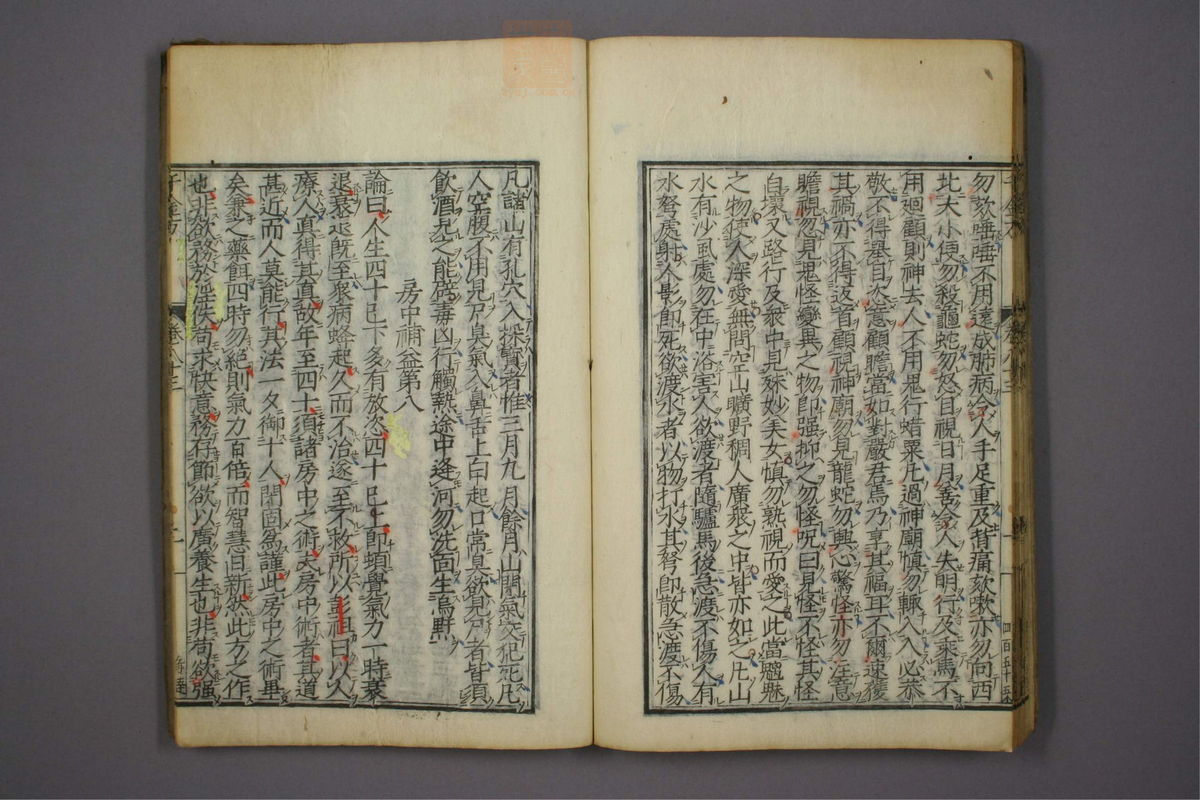 勿欬唾唾不用遠成肺病令人手足重及背痛欬嗽亦勿向西
北大小便勿殺龜蛇勿怒目視日月喜令人失明行及乘馬不
用廻顧則神去人不用鬼行蹋粟凡過神廟慎勿輙入入必恭
敬不得舉目恣意顧瞻當如對嚴君焉乃享其福耳不爾速獲
其禍亦不得返首顧視神廟勿見龍蛇勿興心驚怪亦勿注意
瞻視忽見鬼怪變異之物即强抑之勿怪呪曰見怪不怪其怪
自壞又路行及衆中見殊妙美女慎勿熟視而愛之此當魑魅
之物使人深愛無問空山曠野稠人廣衆之中皆亦如之凡山
水有沙虱處勿在中浴害人欲渡者隨驢馬後急渡不傷人有
水弩處射人影即死欲渡水者以物打水其弩即散急渡不傷
凡諸山有孔穴入採寶者惟三月九月餘月山閉氣交犯死凡
人空腹不用見尸臭氣入鼻舌上白起口常臭欲見尸者皆須
飲酒見之能辟毒凶行觸熱途中逢河勿洗面生烏䵟
房中補益第八
論曰人生四十已下多有放恣四十已上即頓覺氣力一時衰
退衰退既至衆病蜂起久而不治遂至不救所以彭祖曰以人
療人真得其真故年至四十須諸房中之術夫房中術者其道
甚近而人莫能行其法一夕御十人閉固爲謹此房中之術畢
矣兼之藥餌四時勿絶則氣力百倍而智慧日新然此方之作
也非欲務於淫佚苟求快意務存節欲以廣養生也非苟欲强
千金方 卷八十三